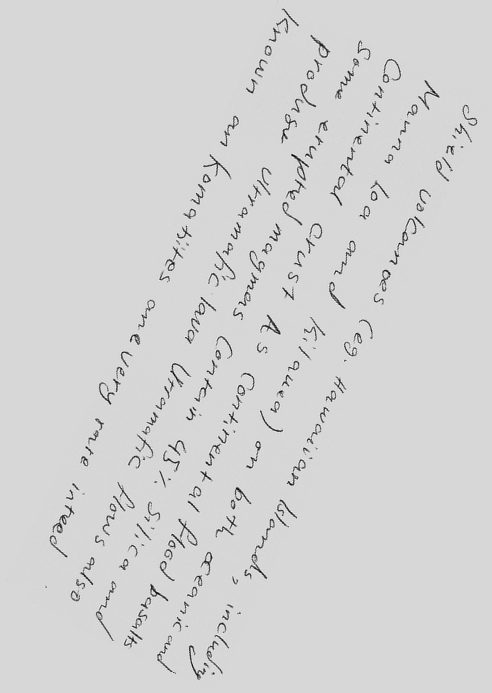 Shield volcanoes (eg. Hawaiian Islands, including
Mauna Loa and Kilauea) on both oceanic and
Continental Crust As Continental flood basalts
Some erupted magmas Contain 45% Silica and
produse Utramafic lava Utramafic flows also
known an Komatiites are very rare inteed